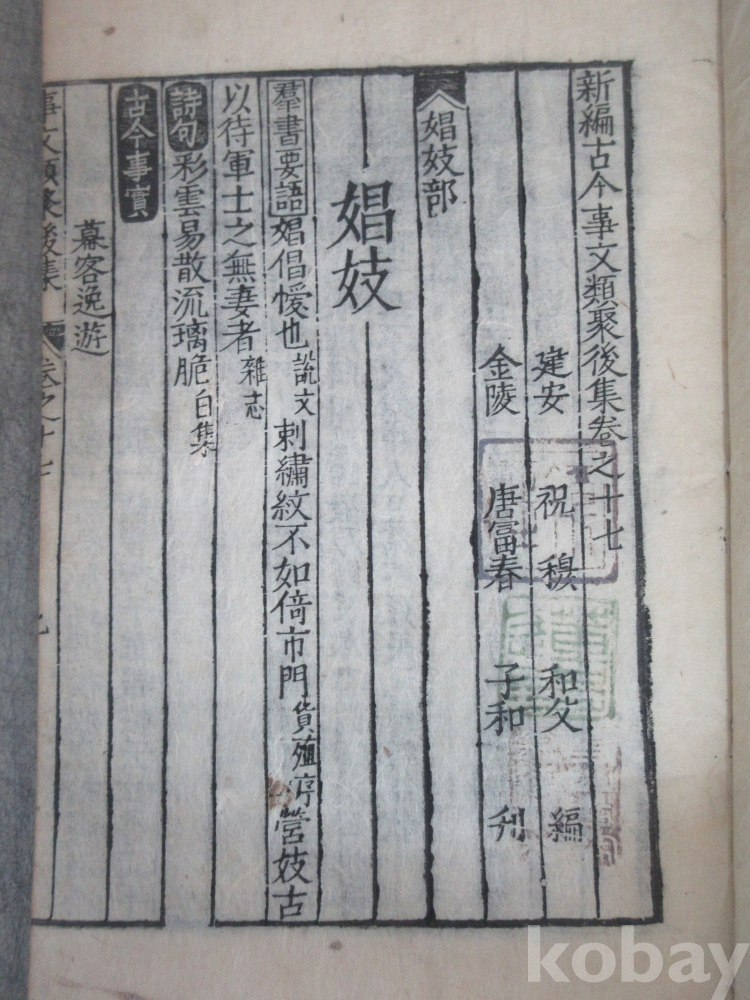 新編古今事文類聚後集卷之十七
建安 祝穆 和父 編
金陵 唐富春 子和 刊
娼妓部
娼妓
羣書要語 娼倡優也 說文 刺繡紋不如倚市門 貨殖序 營妓古
以待軍士之無妻者 雜志
詩句 彩雲易散流璃脆 白集
古今事實
幕客逸遊
事文類聚後集 卷之十七
kobay